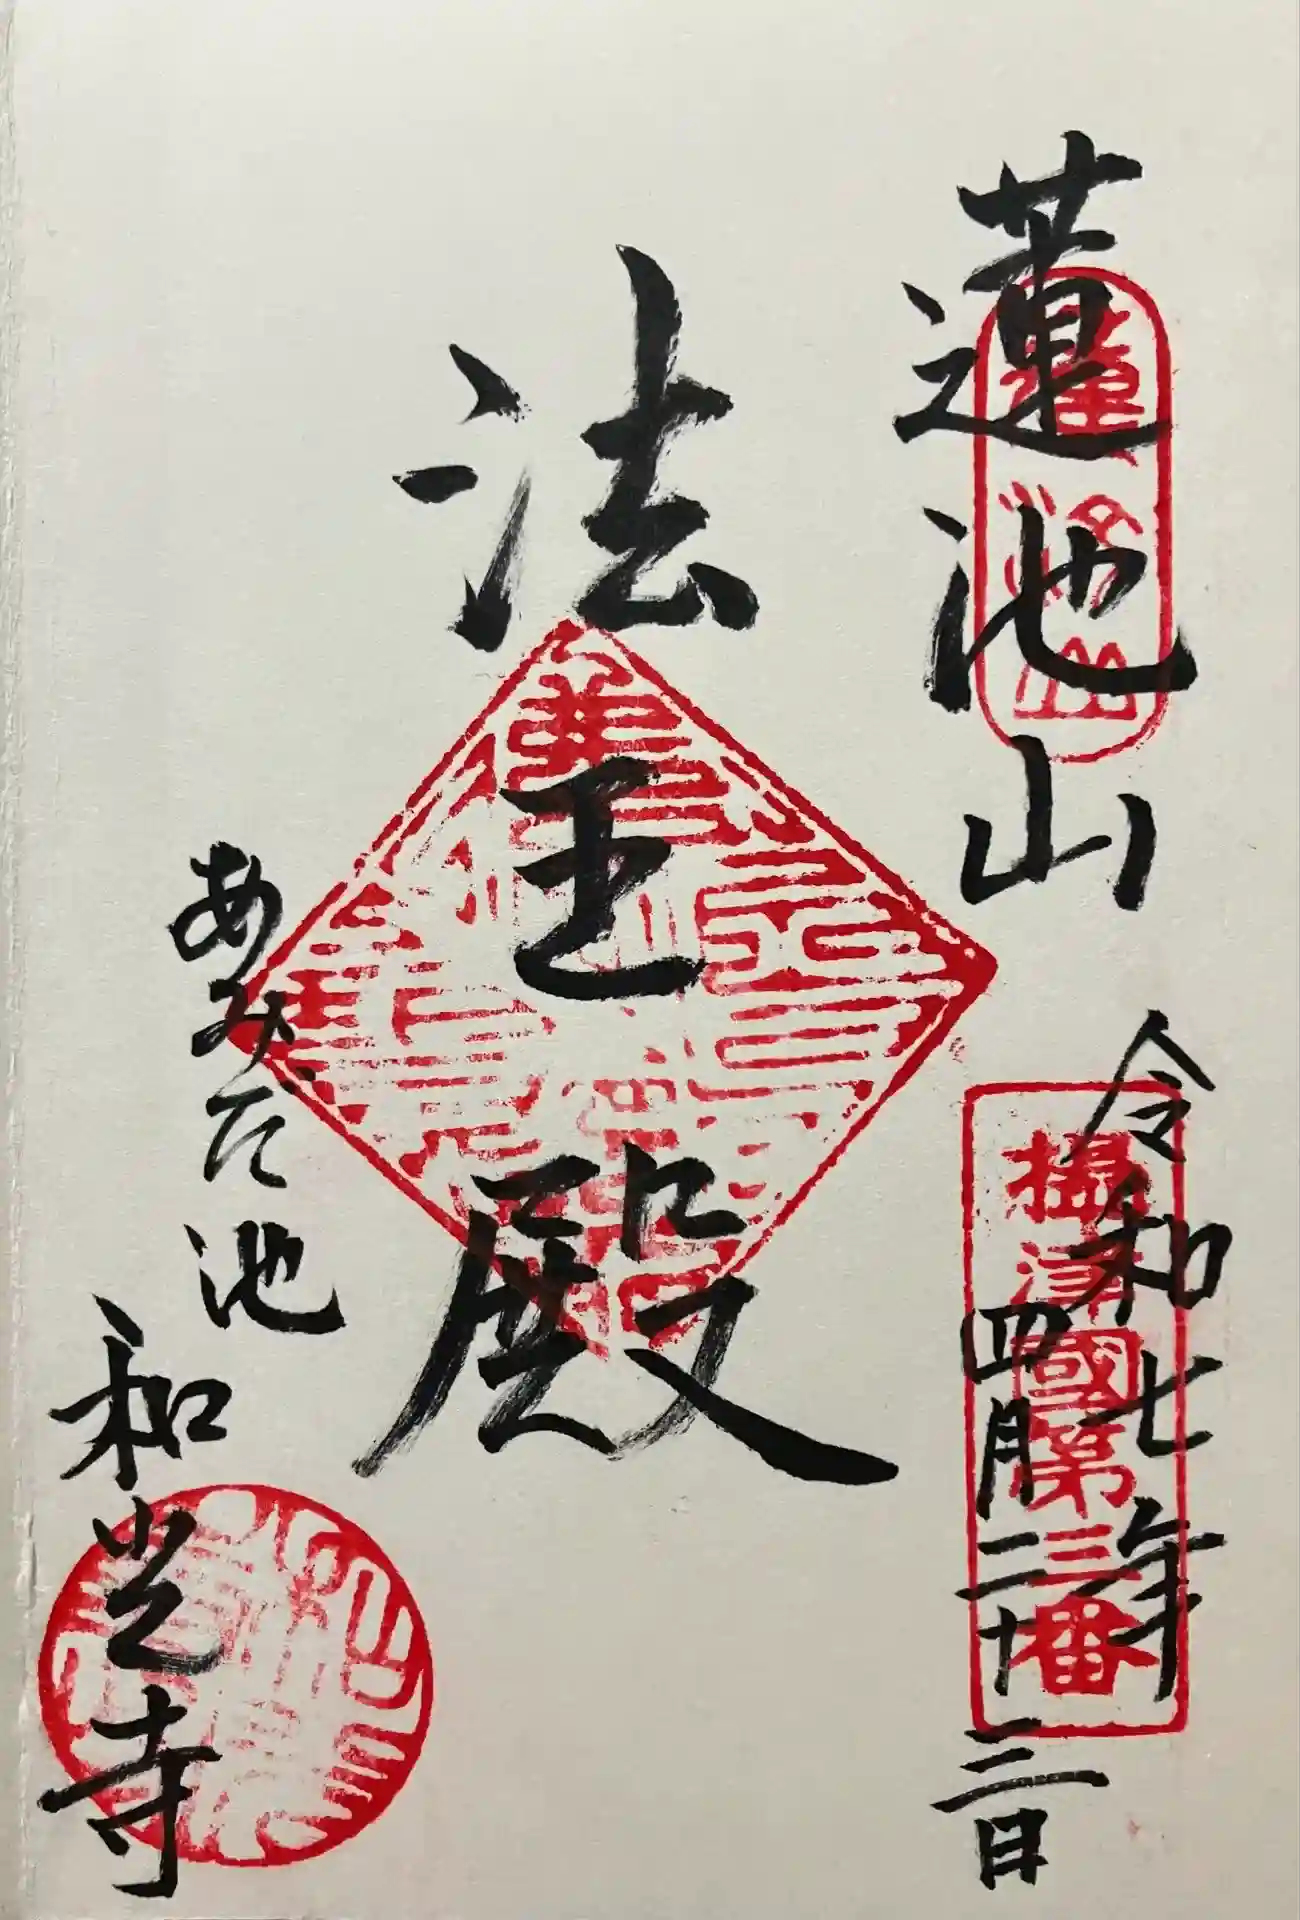 蓮池山
蓮池山
令和七年
四月二十二日
攝津國第三番
法王殿
あみだ池
和光寺